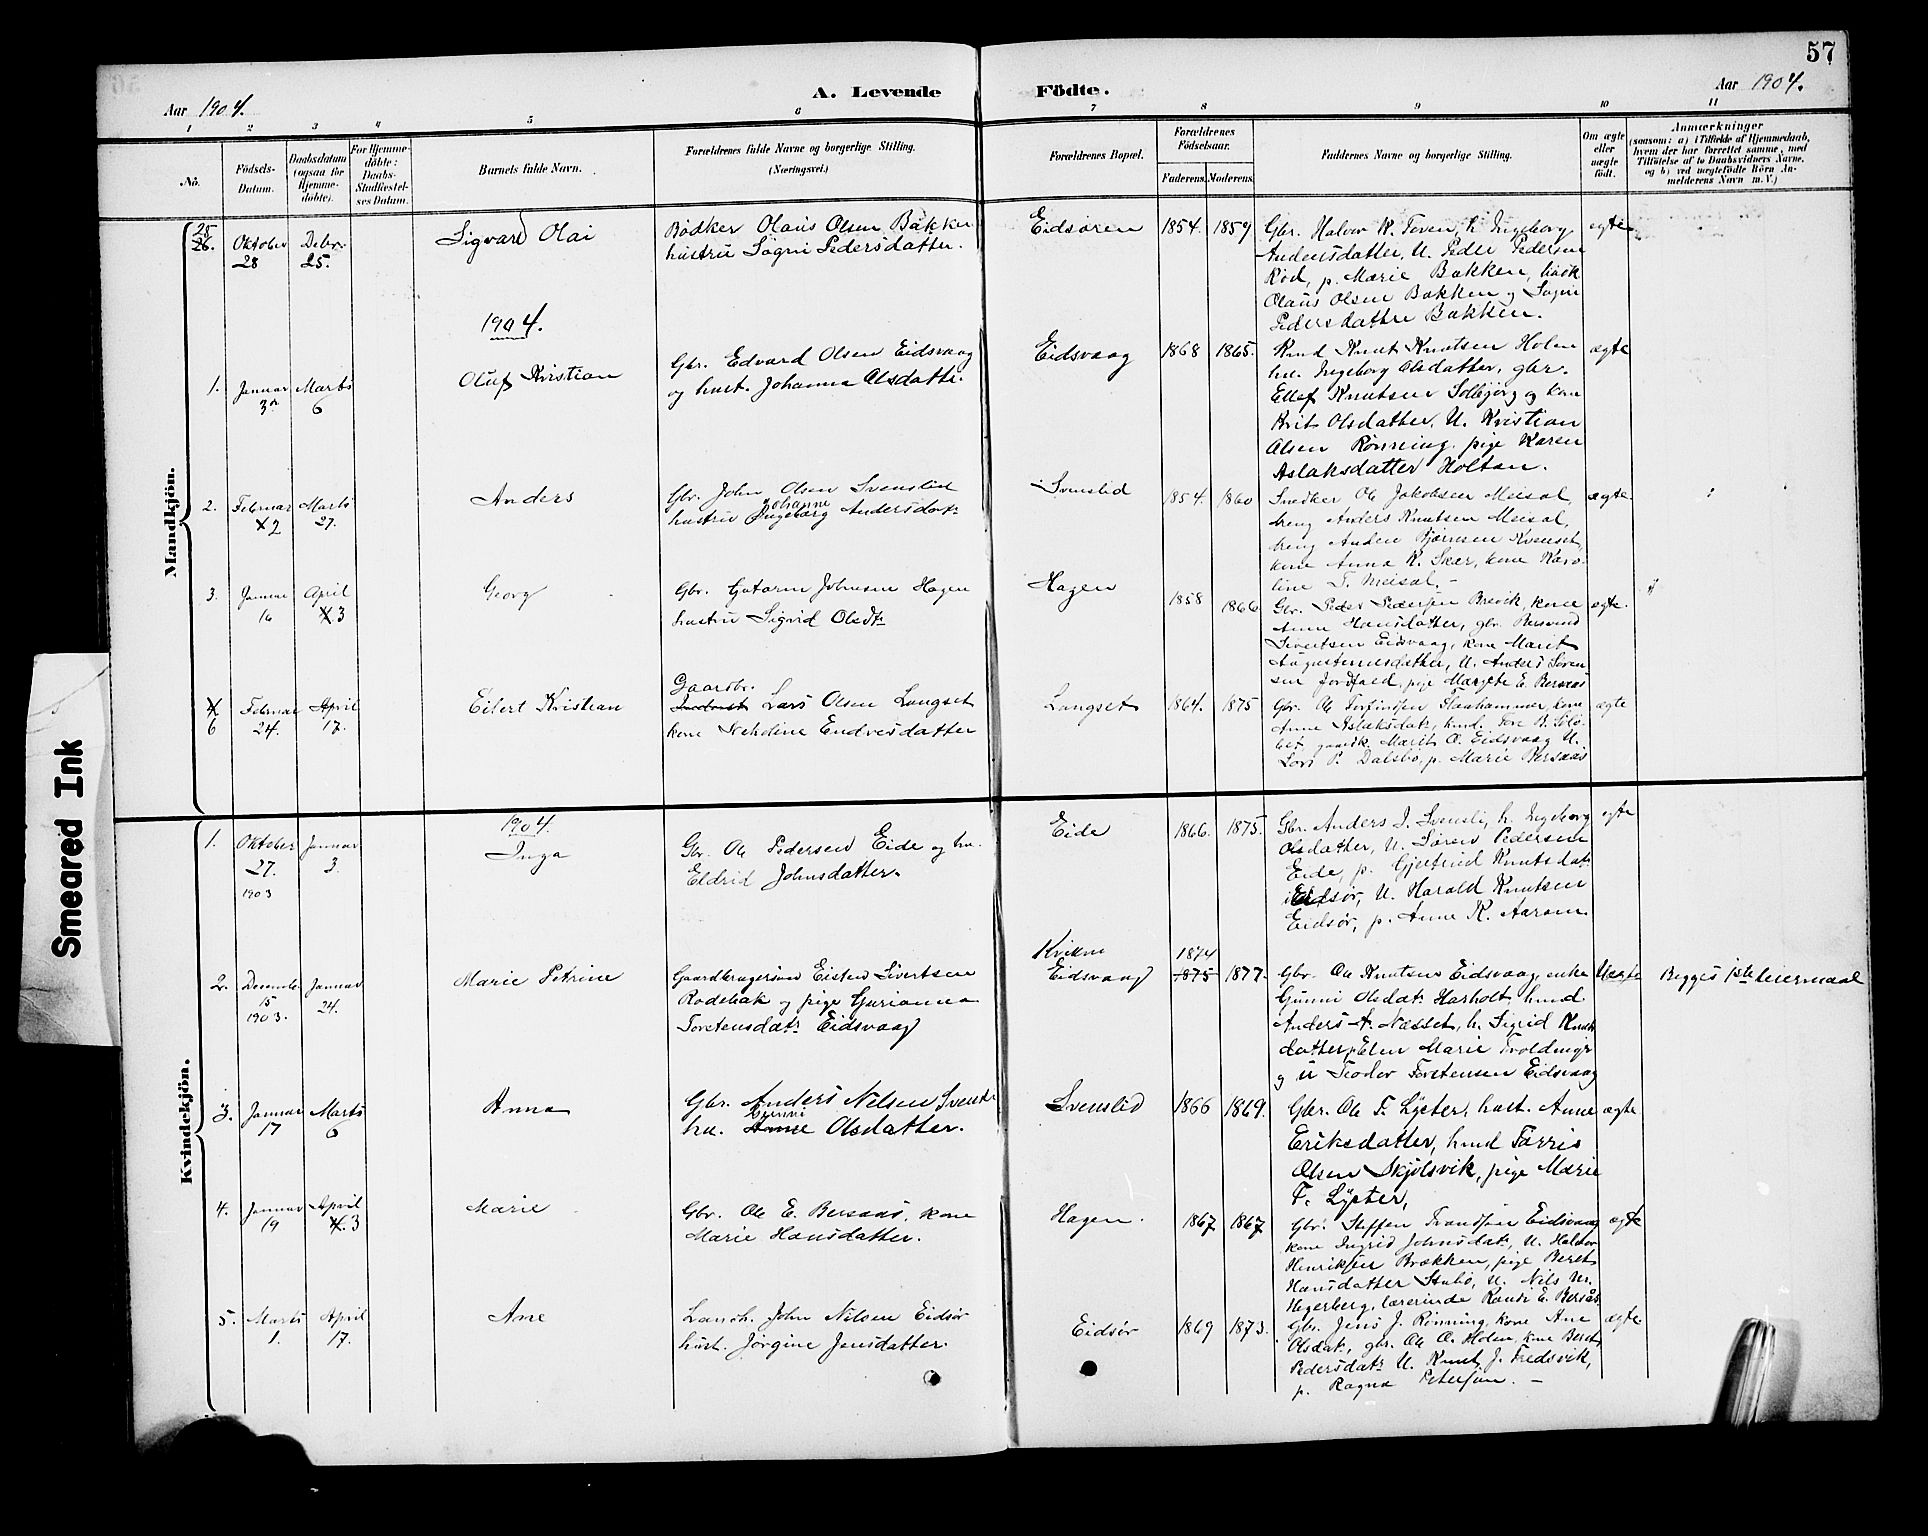 57
Aar 1904.
A. Levende Födte.
Aar 1904.
1 2 3 4 5 6 7 8 9 10 11
No.
Födsels-Datum.
Daabsdatum (ogsaa for Hjemme-döbte).
For Hjemme-döbte: Daabs-Stadfæstel-ses Datum.
Barnets fulde Navn.
Forældrenes fulde Navne og borgerlige Stilling.
(Næringsvei.)
Forældrenes Bopæl.
Forældrenes Födselsaar.
Faderens. Moderens.
Faddernes Navne og borgerlige Stilling.
Om ægte eller uægte födt.
Anmærkninger
(saasom: a) i Tilfælde af Hjemmedaab,
hvem der har forrettet samme, med
Tilföielse af to Daabsvidners Navne,
og b) ved uægtefödte Börn An-
melderens Navn m. V.)
Mandkjön.
25
26. Oktober 28 Debr. 25. Sigvard Olai
Bødker Olaus Olsen Bakken
hustru Søgni Pedersdatter.
Eidsøren 1854. 1859
Gbr. Halvor K. Toven, h. Ingeborg
Andersdatter, U. Peder Pedersen
Rød, p. Marie Bakken,
Olaus Olsen Bakken og Søgni
Pedersdatter Bakken.
ægte
1904.
1. Januar 3 Marts 6 Oluf Kristian
Gbr. Edvard Olsen Eidsvaag
og hust. Johanna Olsdatter.
Eidsvaag 1868 1865.
Kmd Knut Knutsen Holen
hu. Ingeborg Olsdatter, gbr.
Ellef Knutsen Solbjørg og kone
Brit Olsdatter, U. Kristian
Olsen Rønning, pige Karen
Aslaksdatter Holtan.
ægte
2. Februar 2 Marts 27. Anders
Gbr. John Olsen Svenslid
hustru Johanne Ingeborg Andersdatr
Svenslid 1854. 1860
Snedker Ole Jakobsen Meisal,
dreng Anders Knutsen Meisal,
dreng Anders Bjørnsen Kvenset,
kone Anna K. Skar, kone Karo-
line T. Meisal.
ægte
3. Januar 16 April 3 Georg
Gbr. Gutorm Johnsen Hagen
hustru Sigrid Olsdtr
Hagen 1858 1866
Gbr. Peder Pedersen Brevik, kone
Anne Hansdatter, gbr. Bersvend
Sivertsen Eidsvaag, kone Marit
Augustinusdatter, U. Anders Søren
sen Jordfald, pige Margrete E. Bersaas
ægte.
4
6 Februar 24. April 17. Eilert Kristian
Gaardbr.
Lars Olsen Langset
kone Nekoline Endresdatter
Langset 1864. 1875
Gbr. Ole Torfinsen Flaahammer, kone
Anne Aslaksdatr, kmd. Tore B. Slø-
Marit O. Eidsvaag U.
Lars P. Dalsbø, p. Marie Bersaas
ægte
Kvindekjön.
1904.
1. Oktober 27. 1903 Januar 3. Inga
Gbr. Ole Pedersen Eide og hu.
Eldrid Johnsdatter.
Eide 1866. 1875.
Gbr. Anders J. Svensli, h. Ingeborg
Olsdatter, U. Søren Pedersen
Eide, p. Gjertrud Knutsdatr
Eidsør, U. Harald Knutsen
Eidsør, p. Anne K. Aarøen.
ægte
2. December 15 1903. Januar 24. Marie Petrine
Gaardbrugersøn Eisten Sivertsen
Rødebak og pige Gurianna
Torstensdatr Eidsvaag
Kvikne
Eidsvaag 1874
1875 1877.
Gbr. Ole Knutsen Eidsvaag, enke
Gunni Olsdatr Harholt, kmd
Anders A. Næsset, h. Sigrid Knuts
datter, Elen Marie Troldmyr
og U Teodor Torstensen Eidsvaag
Uægte
Begges 1ste leiermaal
3. Januar 17 Marts 6 Anna
Gbr. Anders Nelsen Svensli
hu. Gunni Anne Olsdatter.
Svenslid 1866 1869.
Gbr. Ole T. Lyeter, hust. Anne
Eriksdatter, kmd Tarris
Olsen Skjølsvik, pige Marie
T. Lyeter,
ægte
4. Januar 19 April 3 Marie
Gbr. Ole E. Bersaas, kone
Marie Hansdatter.
Hagen. 1867 1867
Gbr. Steffen Trondsen Eidsvaag
kone Ingrid Johnsdatr, U. Halvor
Henriksen Brækken, pige Beret
Hansdatter Stubø, U. Nils M.
Hegerberg, lærerinde Randi E. Bersås
ægte
5. Marts 1. April 17. Ane
Landh. John Nilsen Eidsør
hust. Jørgine Jensdatter.
Eidsør 1869 1873.
Gbr. Jens J. Rønning, kone Ane
Olsdatr, gbr. Ole O. Holen, kone Beret
Pedersdatr U. Knut J. Fredsvik,
p. Ragna Petersen.
ægte
Smeared Ink